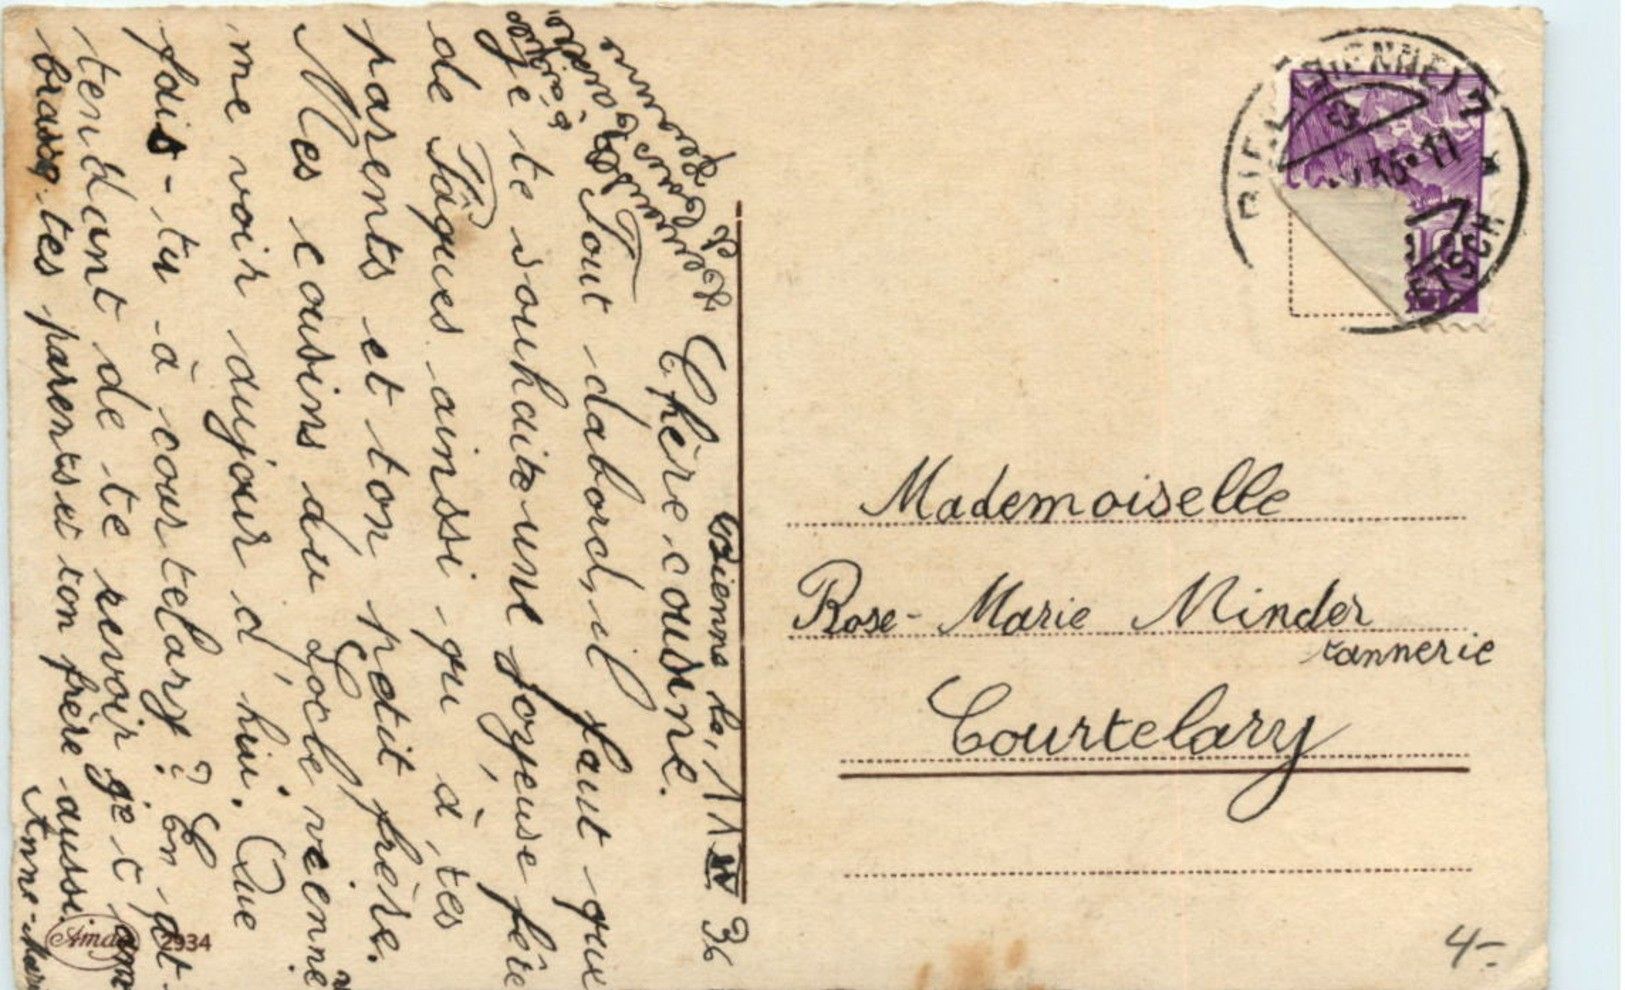 Bienne le, 11 IV 36
Chère cousine.
Tout dabord, il faut que
je te souhaite une joyeuse fête
de Pâques ainsi qu'à tes
parents et ton petit frère.
Mes cousins du Locle vienne
me voir aujour d'hui. Que
fais-tu à courtelary? En at-
tendant de te revoir je t'em
brasse. tes parents et ton frère aussi.
Anne-Marie
Mademoiselle
Rose-Marie Minder
tannerie
Courtelary
BIEL (BIENNE) 1
36-11
10
Amda 2934
4-